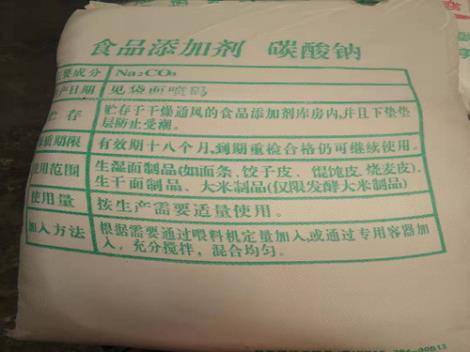 食品添加剂 碳酸钠
主要成分 Na₂CO₃
生产日期 见袋面喷码
贮存 贮存于干燥通风的食品添加剂库房内,并且下垫垫
层防止受潮。
保质期限 有效期十八个月,到期重检合格仍可继续使用。
使用范围 生湿面制品(如面条、饺子皮、馄饨皮、烧麦皮)、
生干面制品、大米制品(仅限发酵大米制品)
使用量 按生产需要适量使用。
加入方法 根据需要通过喂料机定量加入,或通过专用容器加
入,充分搅拌,混合均匀。